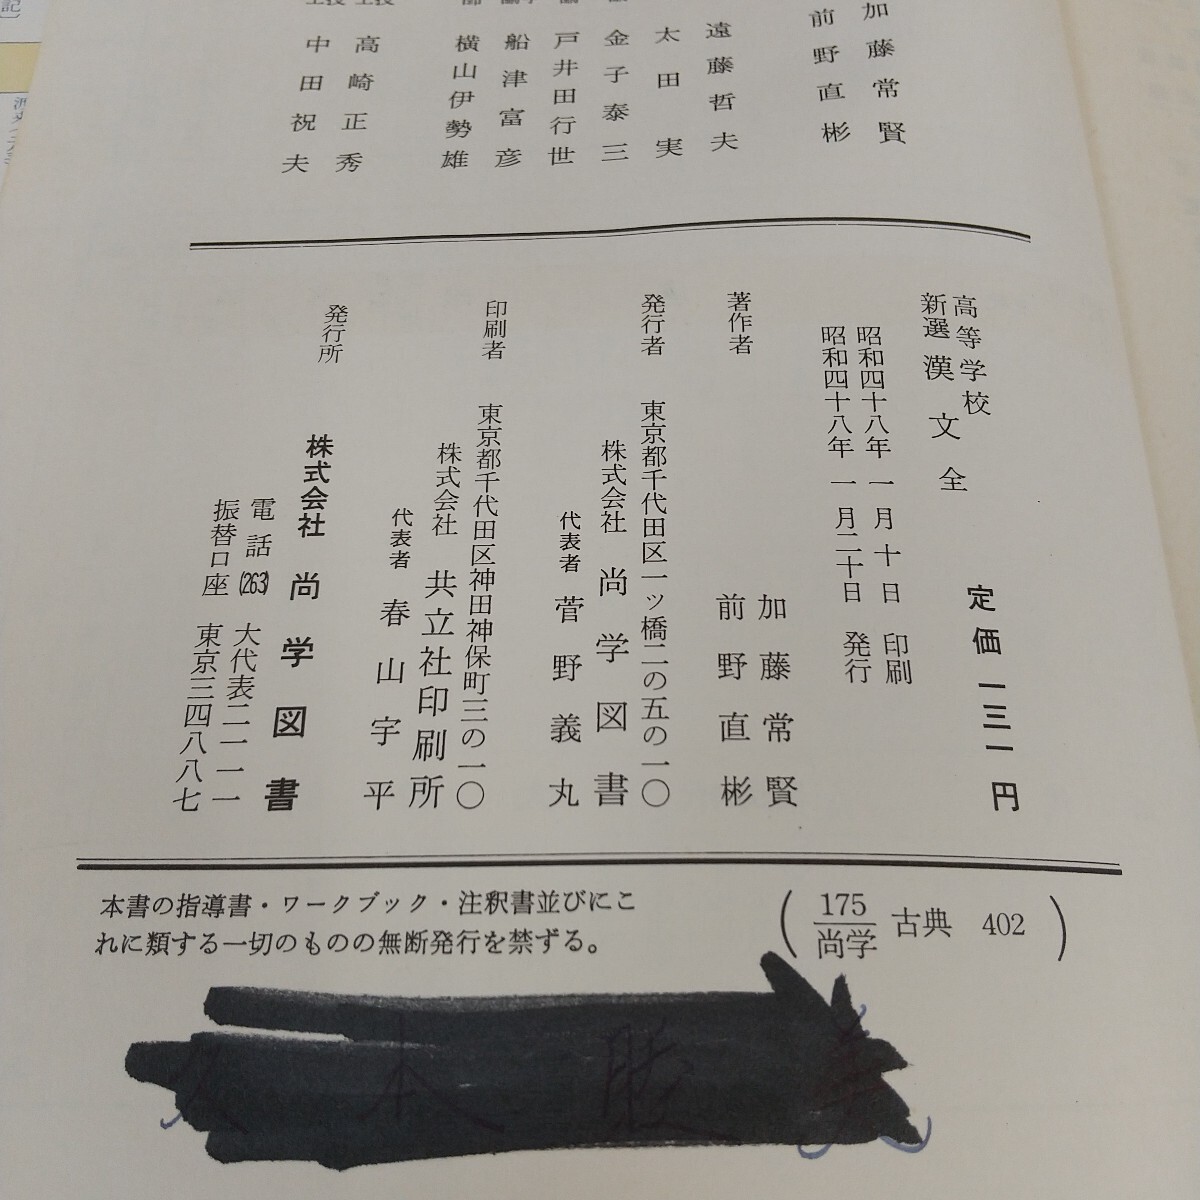 加藤常賢
前野直彬
遠藤哲夫
太田実
金子泰三
戸井田行世
船津富彦
横山伊勢雄
高崎正秀
中田祝夫
高等学校
新選漢文 全
定価 一三一円
昭和四十八年 一月 十日 印刷
昭和四十八年 一月二十日 発行
著作者 加藤常賢
前野直彬
発行者 東京都千代田区一ッ橋二の五の一〇
株式会社 尚学図書
代表者 菅野義丸
印刷者 東京都千代田区神田神保町三の一〇
株式会社 共立社印刷所
代表者 春山宇平
発行所 株式会社 尚学図書
電話(263) 大代表二一一一
振替口座 東京三四八八七
本書の指導書・ワークブック・注釈書並びにこ
れに類する一切のものの無断発行を禁ずる。
(175/尚学 古典 402)